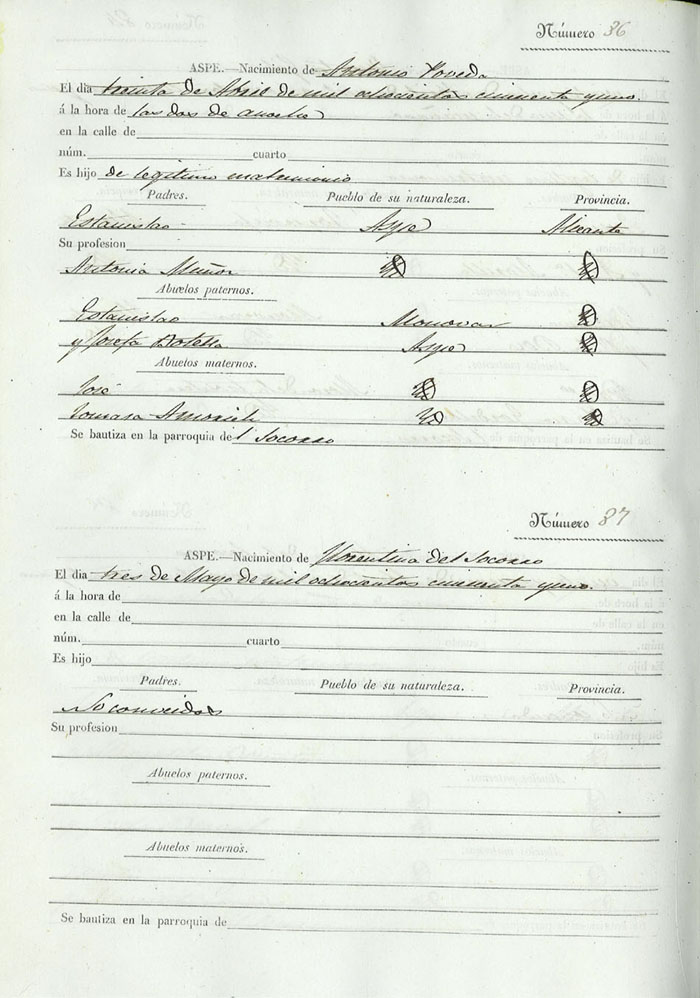 Número 36
ASPE.—Nacimiento de Antonio Poveda
El dia treinta de Abril de mil ochocientos cincuenta y uno.
á la hora de las dos de
en la calle de
núm. cuarto
Es hijo de legitimo matrimonio
Padres. Pueblo de su naturaleza. Provincia.
Estanislao Aspe Alicante
Su profesion
Antonia Muñoz id id
Abuelos paternos.
Estanislao Monovar id
y Josefa Botella Aspe id
Abuelos maternos.
José id id
Tomasa id id
Se bautiza en la parroquia del Socorro
Número 37
ASPE.—Nacimiento de Florentina del Socorro
El dia tres de Mayo de mil ochocientos cincuenta y uno.
á la hora de
en la calle de
núm. cuarto
Es hijo
Padres. Pueblo de su naturaleza. Provincia.
No conocidos
Su profesion
Abuelos paternos.
Abuelos maternos.
Se bautiza en la parroquia de